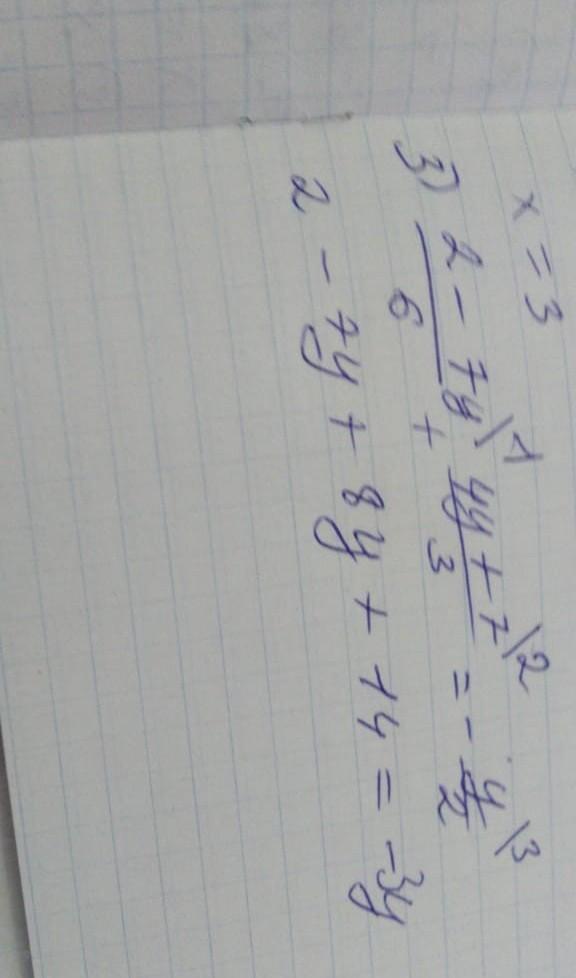 x = 3
3) (2 - 7y)/6 \1 + (4y + 7)/3 \2 = - y/2 \3
2 - 7y + 8y + 14 = -3y